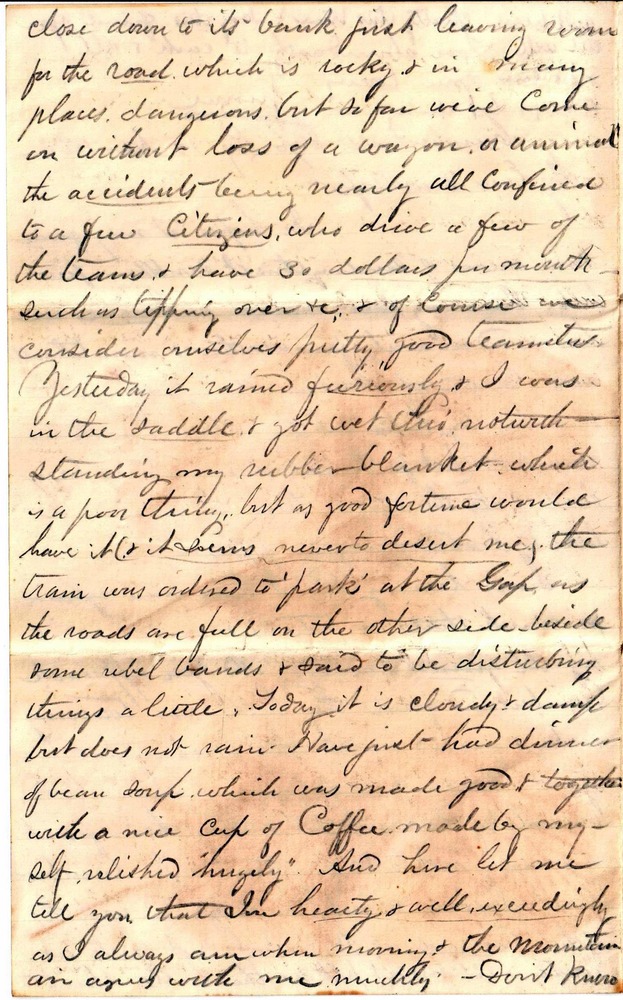 close down to its bank just leaving room
for the road. which is rocky & in many
places. dangerous. but so far we've come
on without loss of a wagon. or animal
the accidents being nearly all confined
to a few Citizens, who drive a few of
the teams, & have 30 dollars per month -
such as tipping over &c, & of course we
consider ourselves pretty good teamsters.
Yesterday it rained furiously & I was
in the saddle. & got wet thro', notwith-
standing my rubber blanket. which
is a poor thing, but as good fortune would
have it (& it seems never to desert me,) the
train was ordered to 'park' at the Gap as
the roads are full on the other side beside
some rebel bands & said to be disturbing
things a little. Today it is cloudy & damp
but does not rain. Have just had dinner
of bean soup. which was made good & together
with a nice cup of Coffee. made by my-
self, relished "hugely". And here let me
tell you that I'm hearty & well, exceedingly
as I always am when moving & the mountain
air agrees with me muchly. - Don't know